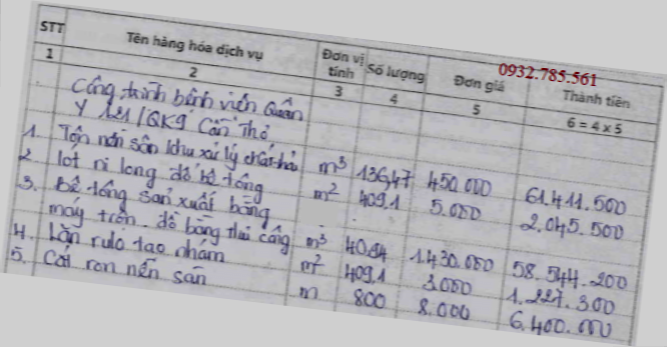 0932.785.561
STT Tên hàng hóa dịch vụ Đơn vị tính Số lượng Đơn giá Thành tiền
1 2 3 4 5 6 = 4 x 5
Công trình bệnh viện Quân
Y 121/QK9 Cần Thơ
1. Tôn nền sân khu xử lý chất thải m³ 136,47 450.000 61.411.500
2. lót ni long đổ bê tông m² 409,1 5.000 2.045.500
3. Bê tông sản xuất bằng
máy trộn. đổ bằng thủ công m³ 40,94 1.430.000 58.544.200
4. Lăn rulo tạo nhám m² 409,1 3.000 1.227.300
5. Cắt ron nền sân m 800 8.000 6.400.000